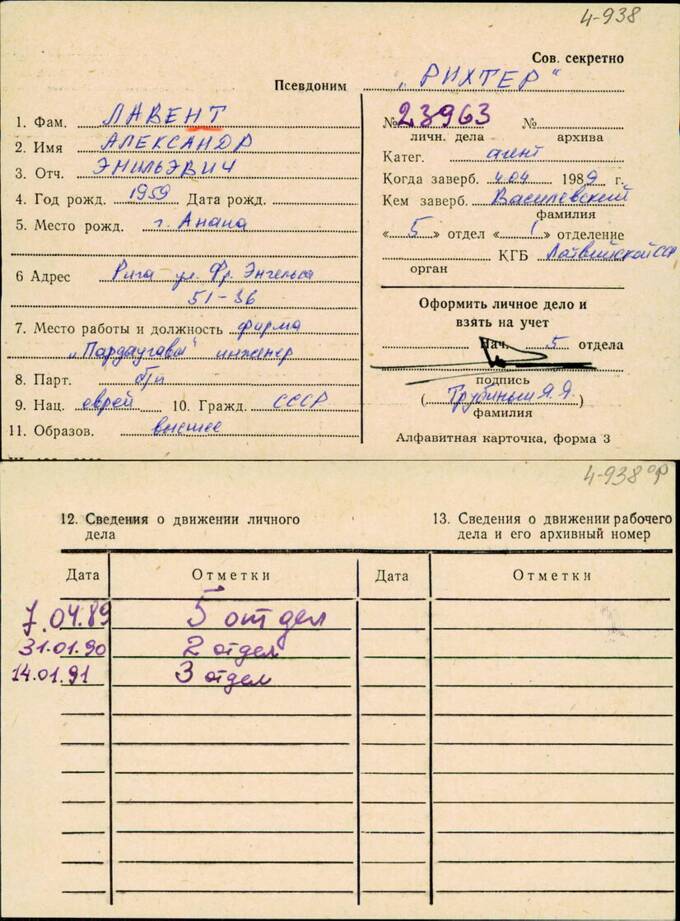 4-938
Сов. секретно
Псевдоним „РИХТЕР"
1. Фам. ЛАВЕНТ
2. Имя АЛЕКСАНДР
3. Отч. ЭМИЛЬЭВИЧ
4. Год рожд. 1959 Дата рожд.
5. Место рожд. г. Анапа
6 Адрес Рига ул. Фр. Энгельса
51-36
7. Место работы и должность фирма
„Пардаугава" инженер
8. Парт. б/п
9. Нац. еврей 10. Гражд. СССР
11. Образов. высшее
№ 23963 №
личн. дела архива
Катег. агент
Когда заверб. 4.04 1989 г.
Кем заверб. Василевский
фамилия
«5» отдел «1» отделение
КГБ Латвийской ССР
орган
Оформить личное дело и
взять на учет
Нач. 5 отдела
подпись
(Трубиньш Я.Я.)
фамилия
Алфавитная карточка, форма 3
4-938 об
12. Сведения о движении личного
дела
13. Сведения о движении рабочего
дела и его архивный номер
Дата Отметки Дата Отметки
7.04.89 5 отдел
31.01.90 2 отдел
14.01.91 3 отдел